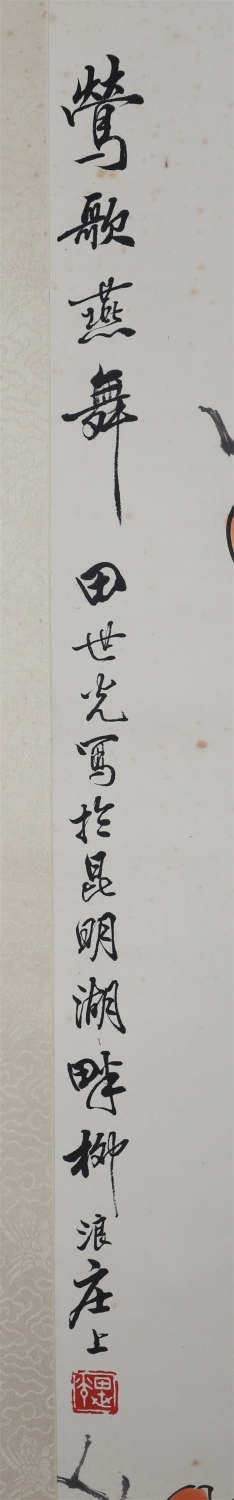 鶯歌燕舞 田世光寫於昆明湖畔柳浪庄上